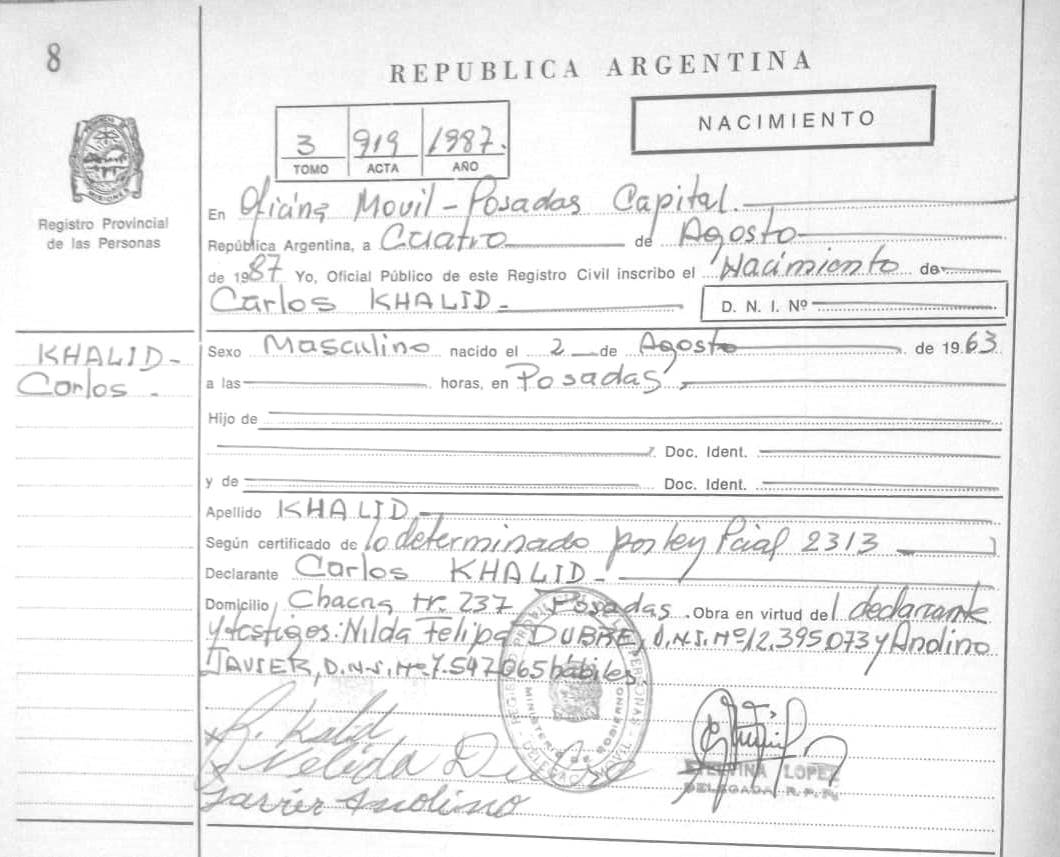 8
REPUBLICA ARGENTINA
NACIMIENTO
3 919 1987.
TOMO ACTA AÑO
Registro Provincial
de las Personas
En Oficina Movil - Posadas Capital.
República Argentina, a Cuatro de Agosto
de 1987 Yo, Oficial Público de este Registro Civil inscribo el Nacimiento de
Carlos KHALID - D. N. I. Nº
KHALID -
Carlos -
Sexo Masculino nacido el 2 de Agosto de 1963
a las horas, en Posadas
Hijo de
Doc. Ident.
y de Doc. Ident.
Apellido KHALID
Según certificado de lo determinado por ley Pcial 2313
Declarante Carlos KHALID -
Domicilio Chacra 237 Posadas. Obra en virtud del declarante
y testigos: Nilda Felipa DUBRE, D.N.I. Nº 12.395.073 y Andino
JAVIER, D.N.I. Nº 7.547065 hábiles.
Kalid
Nelida
Javier Andino
LOPEZ
DELEGADA R. P. P.
MINISTERIO DE GOBIERNO